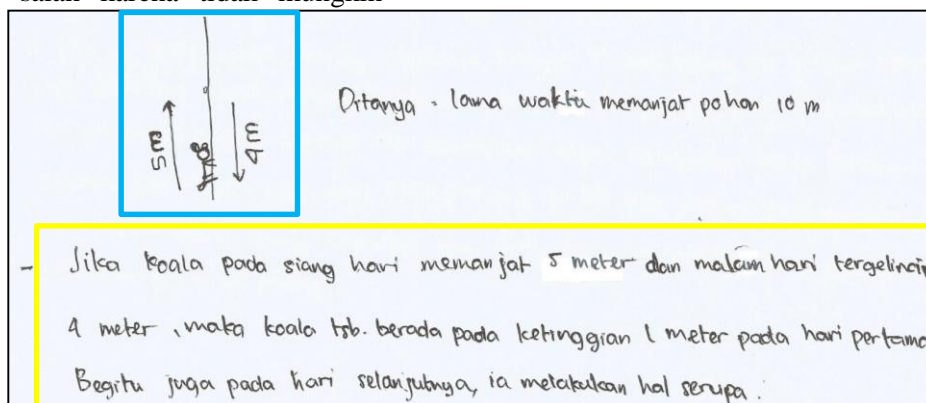 salah karena tidak mungkin
5m
4m
Ditanya . lama waktu memanjat pohon 10 m
- Jika koala pada siang hari memanjat 5 meter dan malam hari tergelincir
4 meter , maka koala tsb. berada pada ketinggian 1 meter pada hari pertama
Begitu juga pada hari selanjutnya, ia melakukan hal serupa.